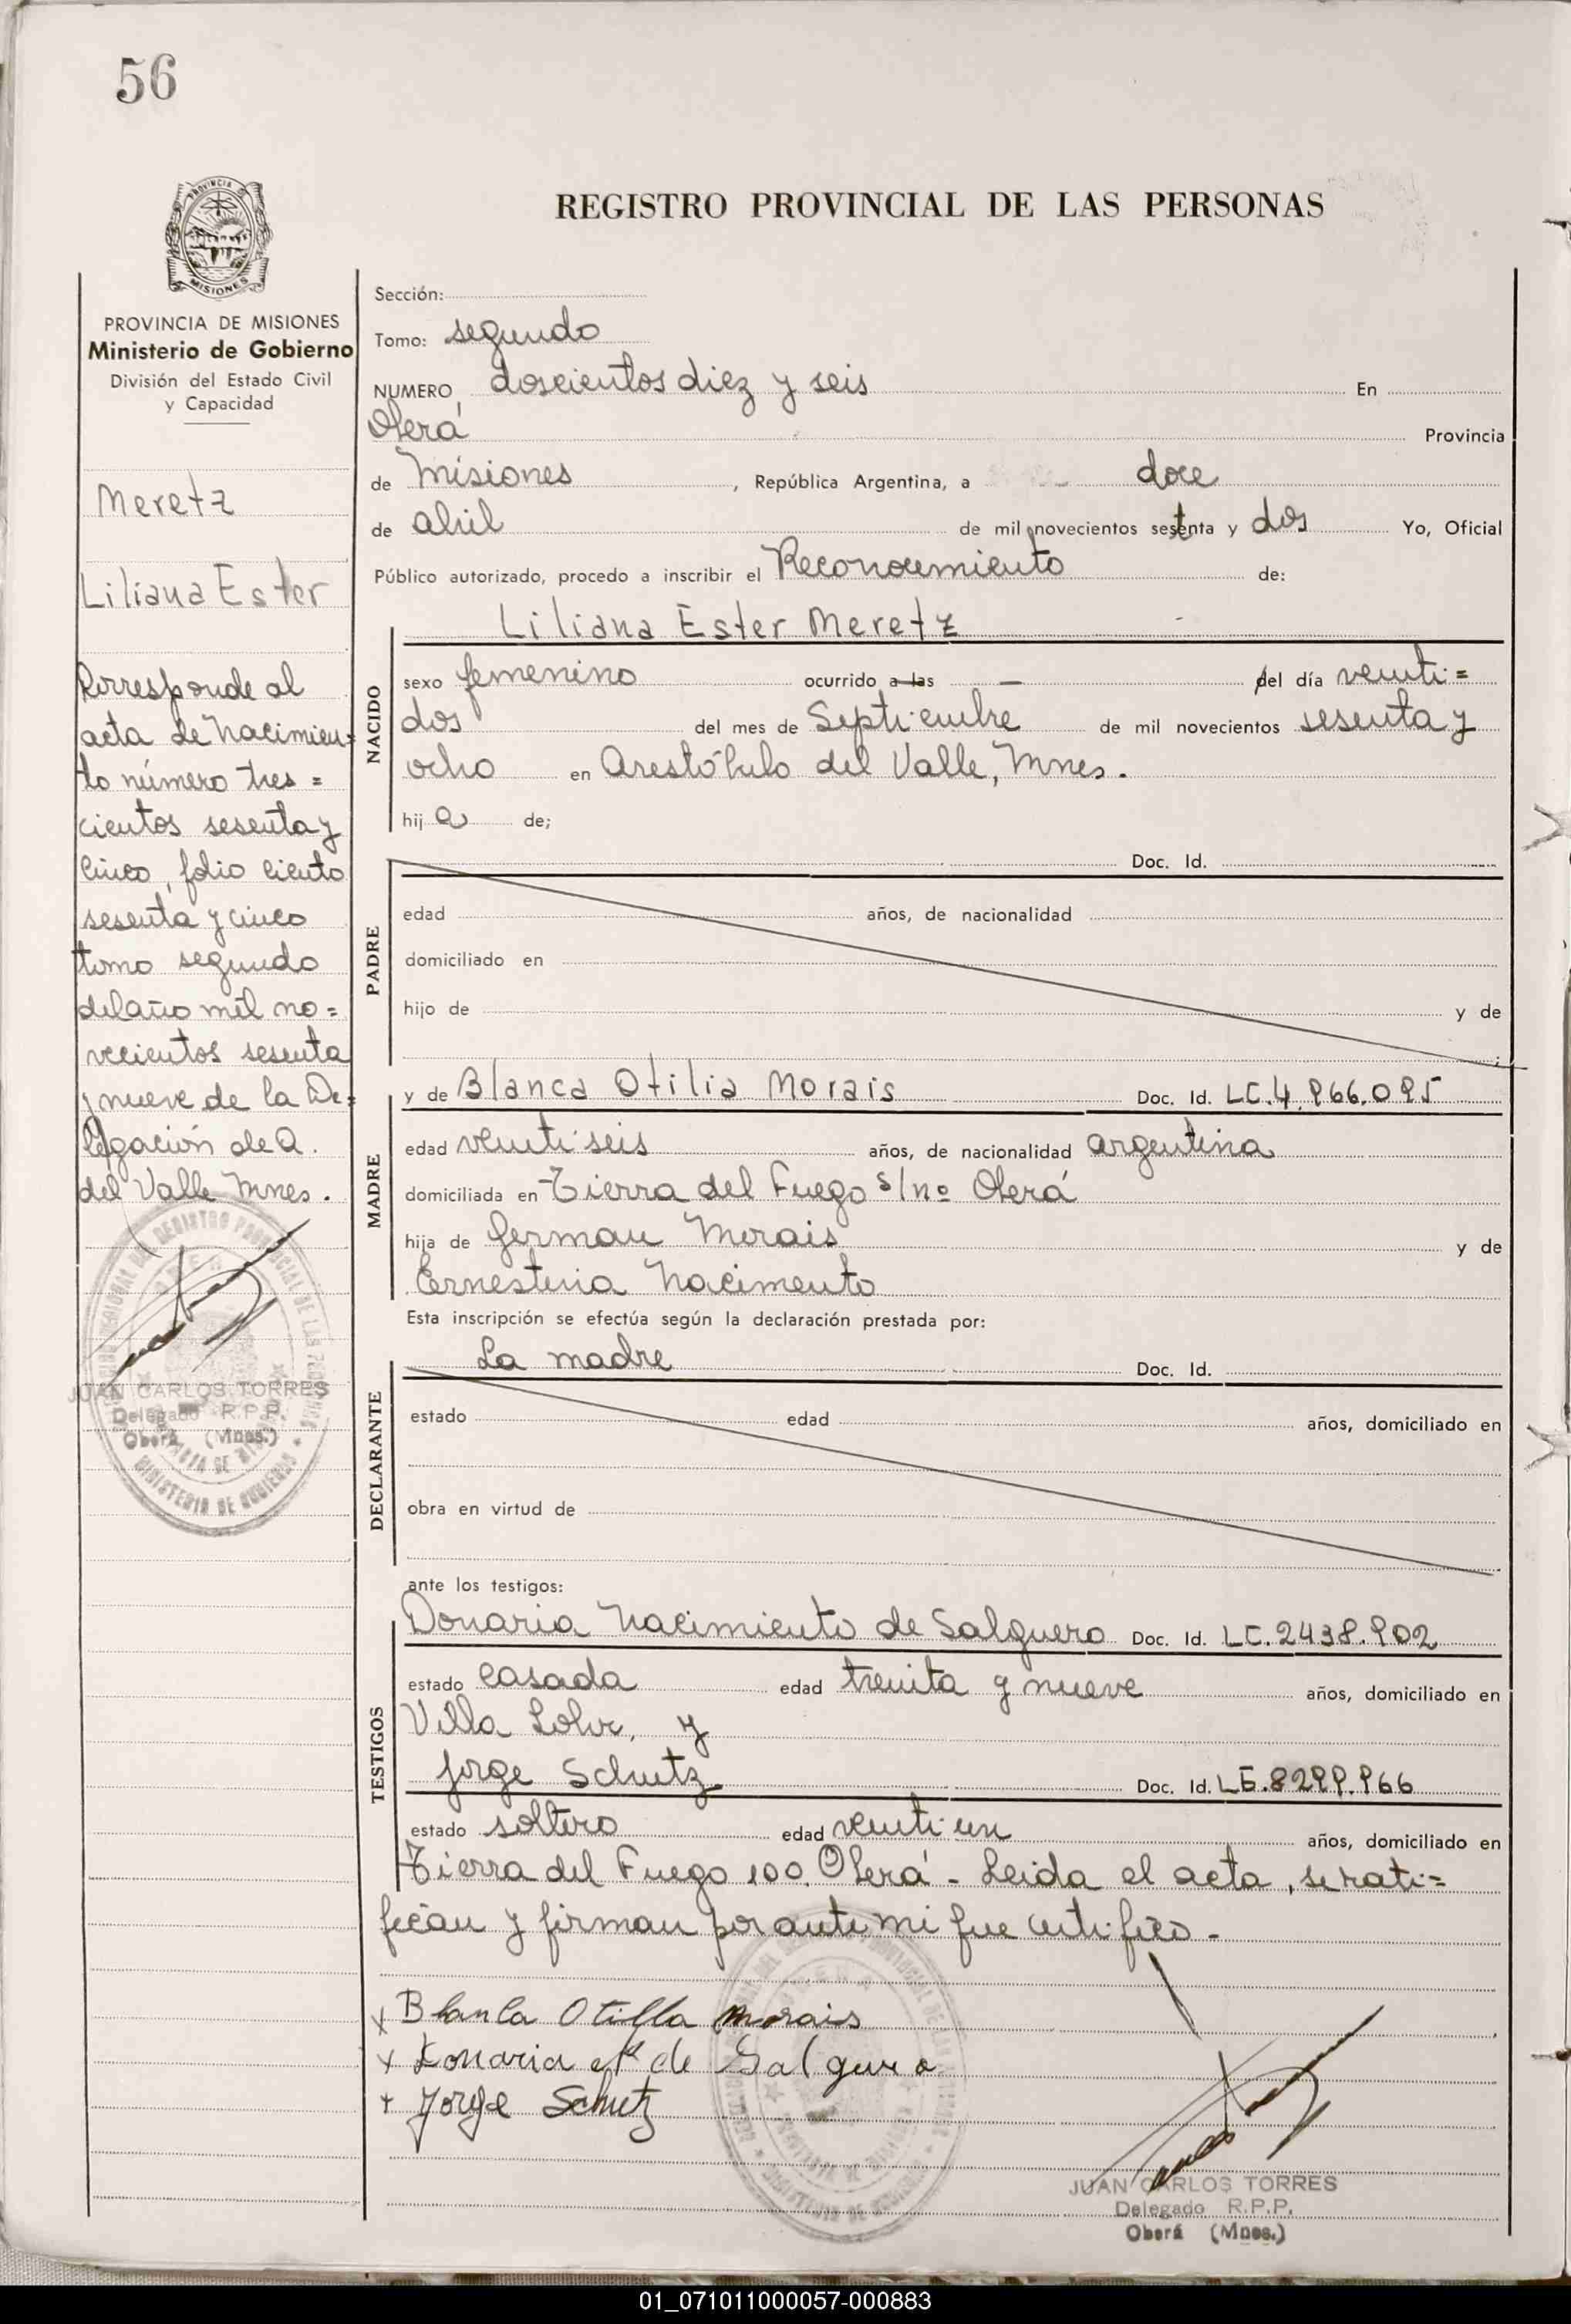 56
REGISTRO PROVINCIAL DE LAS PERSONAS
PROVINCIA DE MISIONES
Ministerio de Gobierno
División del Estado Civil
y Capacidad
Meretz
Liliana Ester
Corresponde al
acta de Nacimien=
to número tres =
cientos sesenta y
cinco, folio ciento
sesenta y cinco
tomo segundo
del año mil no=
vecientos sesenta
y nueve de la De=
legación de A.
del Valle Mnes.
JUAN CARLOS TORRES
Delegado R.P.P.
Oberá (Mnes.)
Sección:
Tomo: segundo
NUMERO doscientos diez y seis En
Oberá Provincia
de Misiones, República Argentina, a doce
de abril de mil novecientos setenta y dos Yo, Oficial
Público autorizado, procedo a inscribir el Reconocimiento de:
Liliana Ester Meretz
NACIDO
sexo femenino ocurrido a las — del día veinti=
dos del mes de Septiembre de mil novecientos sesenta y
ocho en Arestóbulo del Valle, Mnes.
hija de;
PADRE
Doc. Id.
edad años, de nacionalidad
domiciliado en
hijo de y de
MADRE
y de Blanca Otilia Morais Doc. Id. LC. 4.966.095
edad veinti seis años, de nacionalidad argentina
domiciliada en Tierra del Fuego s/nº Oberá
hija de German Morais y de
Ernestina Nacimento
Esta inscripción se efectúa según la declaración prestada por:
DECLARANTE
La madre Doc. Id.
estado edad años, domiciliado en
obra en virtud de
ante los testigos:
TESTIGOS
Donaria Nacimiento de Salguero Doc. Id. LC. 2438.902
estado casada edad treinta y nueve años, domiciliado en
Villa y
Jorge Schutz Doc. Id. LE. 8299.966
estado soltero edad veinti un años, domiciliado en
Tierra del Fuego 100. Oberá - Leida el acta, se rati=
fican y firman por ante mi que certifico -
x Blanca Otilla Morais
x Donaria de Salguero
+ Jorge Schutz
JUAN CARLOS TORRES
Delegado R.P.P.
Oberá (Mnes.)
01_071011000057-000883